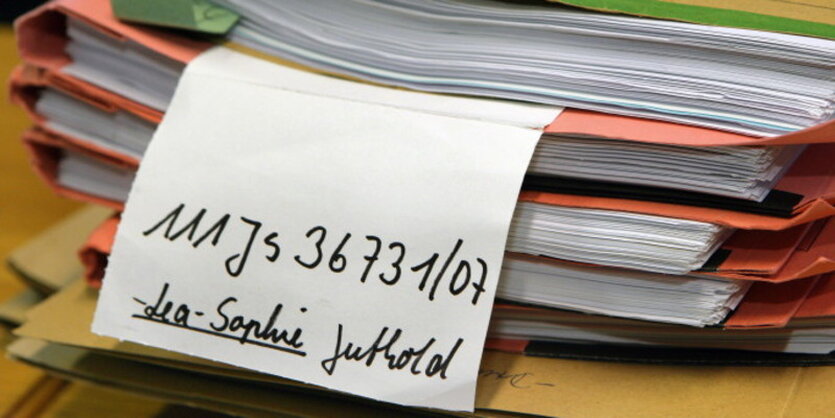 111 Js 36731/07
-Lea-Sophie Juthold